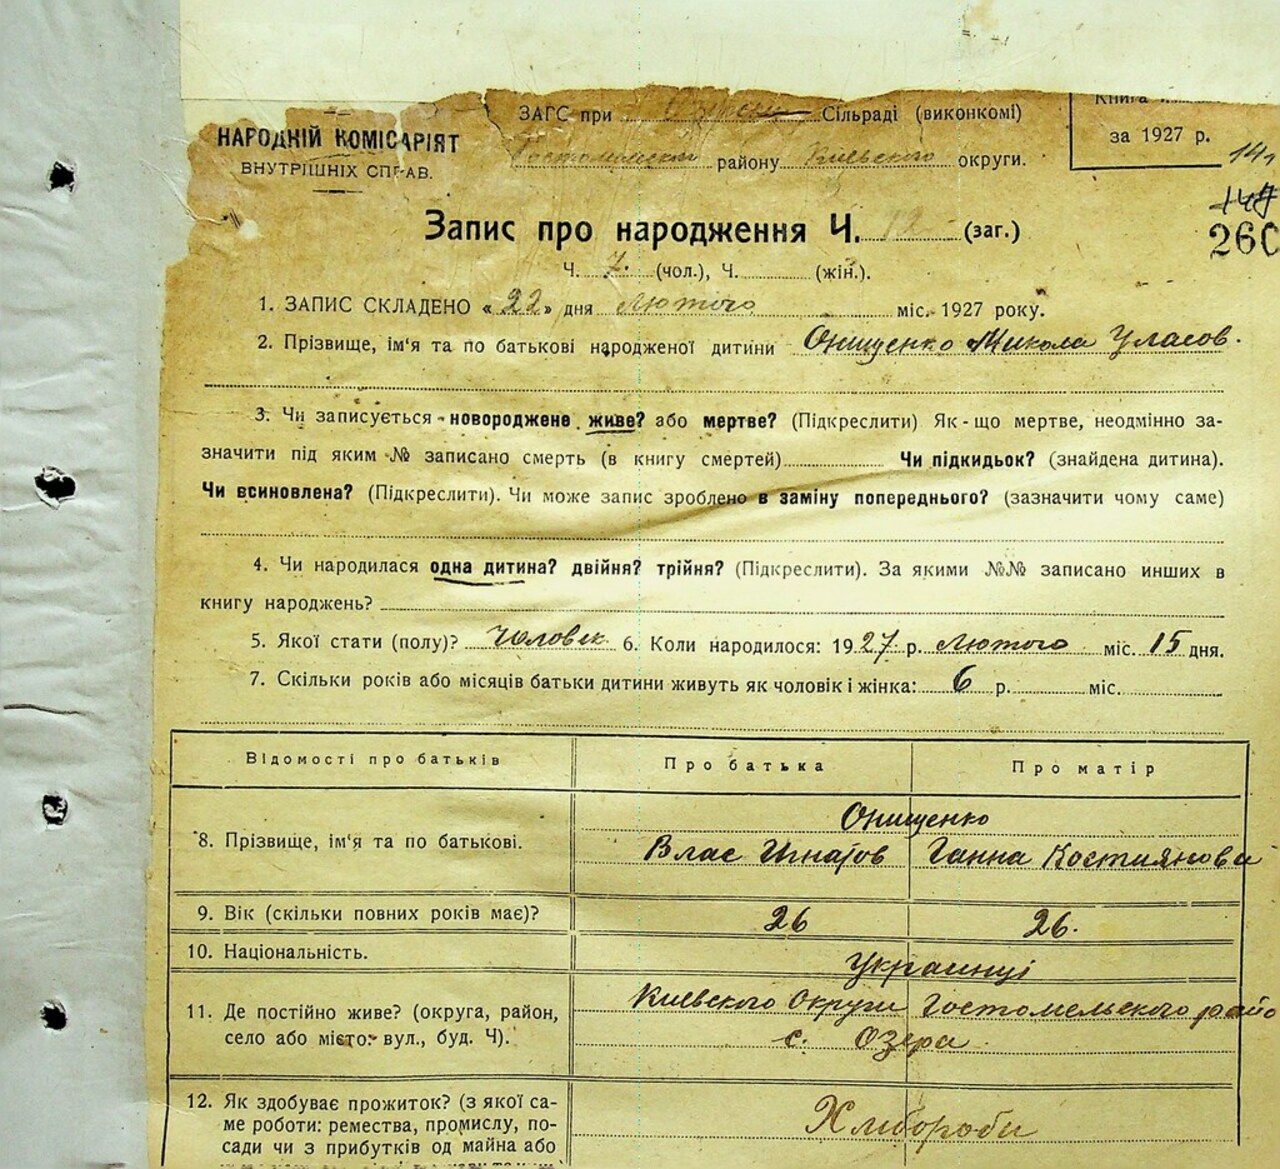 ЗАГС при Озерськ Сільраді (виконкомі)
Книга
НАРОДНІЙ КОМІСАРІЯТ
за 1927 р.
ВНУТРІШНІХ СПРАВ.
Гостомельськ району Киевского округи.
Запис про народження Ч. 12 (заг.)
260
Ч. 7. (чол.), Ч. (жін.).
1. ЗАПИС СКЛАДЕНО «22» дня Лютого міс. 1927 року.
2. Прізвище, ім'я та по батькові народженої дитини Онищенко Микола Уласов.
3. Чи записується новороджене живе? або мертве? (Підкреслити) Як-що мертве, неодмінно за-
значити під яким № записано смерть (в книгу смертей) Чи підкидьок? (знайдена дитина).
Чи всиновлена? (Підкреслити). Чи може запис зроблено в заміну попереднього? (зазначити чому саме)
4. Чи народилася одна дитина? двійня? трійня? (Підкреслити). За якими №№ записано инших в
книгу народжень?
5. Якої стати (полу)? Человек 6. Коли народилося: 1927 р. Лютого міс. 15 дня.
7. Скільки років або місяців батьки дитини живуть як чоловік і жінка: 6 р. міс.
Відомості про батьків Про батька Про матір
Онищенко
8. Прізвище, ім'я та по батькові. Влас Игнатов Ганна Костиянови
9. Вік (скільки повних років має)? 26 26.
10. Національність. Украинці
Киевского Округи Гостомельского райо
11. Де постійно живе? (округа, район,
село або місто: вул., буд. Ч). с. Озера
12. Як здобуває прожиток? (з якої са-
ме роботи: ремества, промислу, по- Хлибороби
сади чи з прибутків од майна або